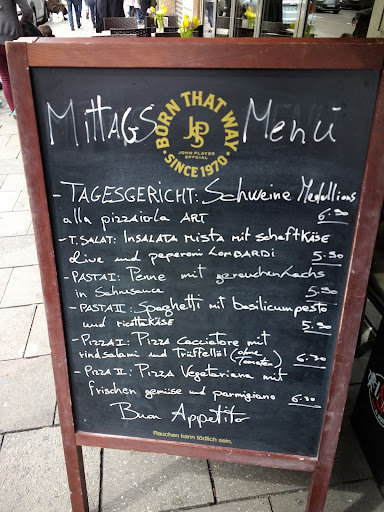 BORN THAT WAY
MITTAGS Menü
JPS
JOHN PLAYER
SPECIAL
SINCE 1970
- TAGESGERICHT: Schweine Medallions
alla pizzaiola ART 6.90
- T. SALAT: INSALATA MISTA mit schaftKÄSE
Olive und peperoni LOMBARDI 5.90
- PASTA I: Penne mit gereuchen Lachs
in Sahnesauce 5.90
- PASTA II: Spaghetti mit basilicumpesto
und ricottaKÄSE 5.90
- PIZZA I: PIZZA Cacciatore mit
rindsalami und Trüffelöl (ohne Tomaten) 6.90
- PIZZA II: PIZZA Vegetariana mit
frischen gemüse und parmigiano 6.90
Buon Appetito
Rauchen kann tödlich sein.